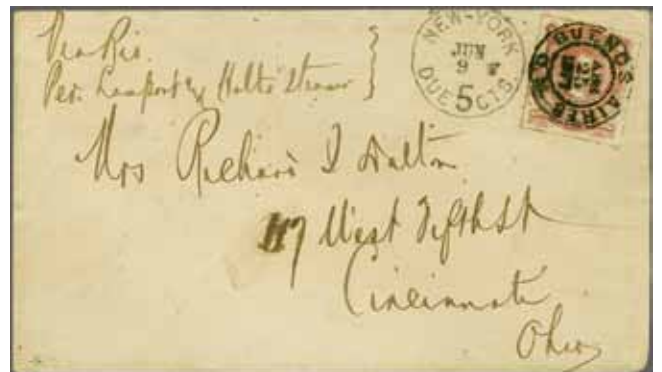 Via Rio
Per. Lamport & Holts Steamer
NEW-YORK
JUN
9
DUE 5 CTS
BUENOS AIRES
Mrs Richard I Dalton
117 West Fifth St
Cincinnati
Ohio